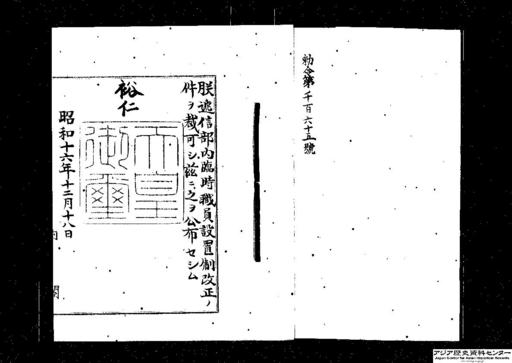 勅令第千百六十五號
朕遞信部内臨時職員設置制改正ノ
件ヲ裁可シ茲ニ之ヲ公布セシム
裕仁
天皇
御璽
昭和十六年十二月十八日
アジア歴史資料センター
Japan Center for Asian Historical Records